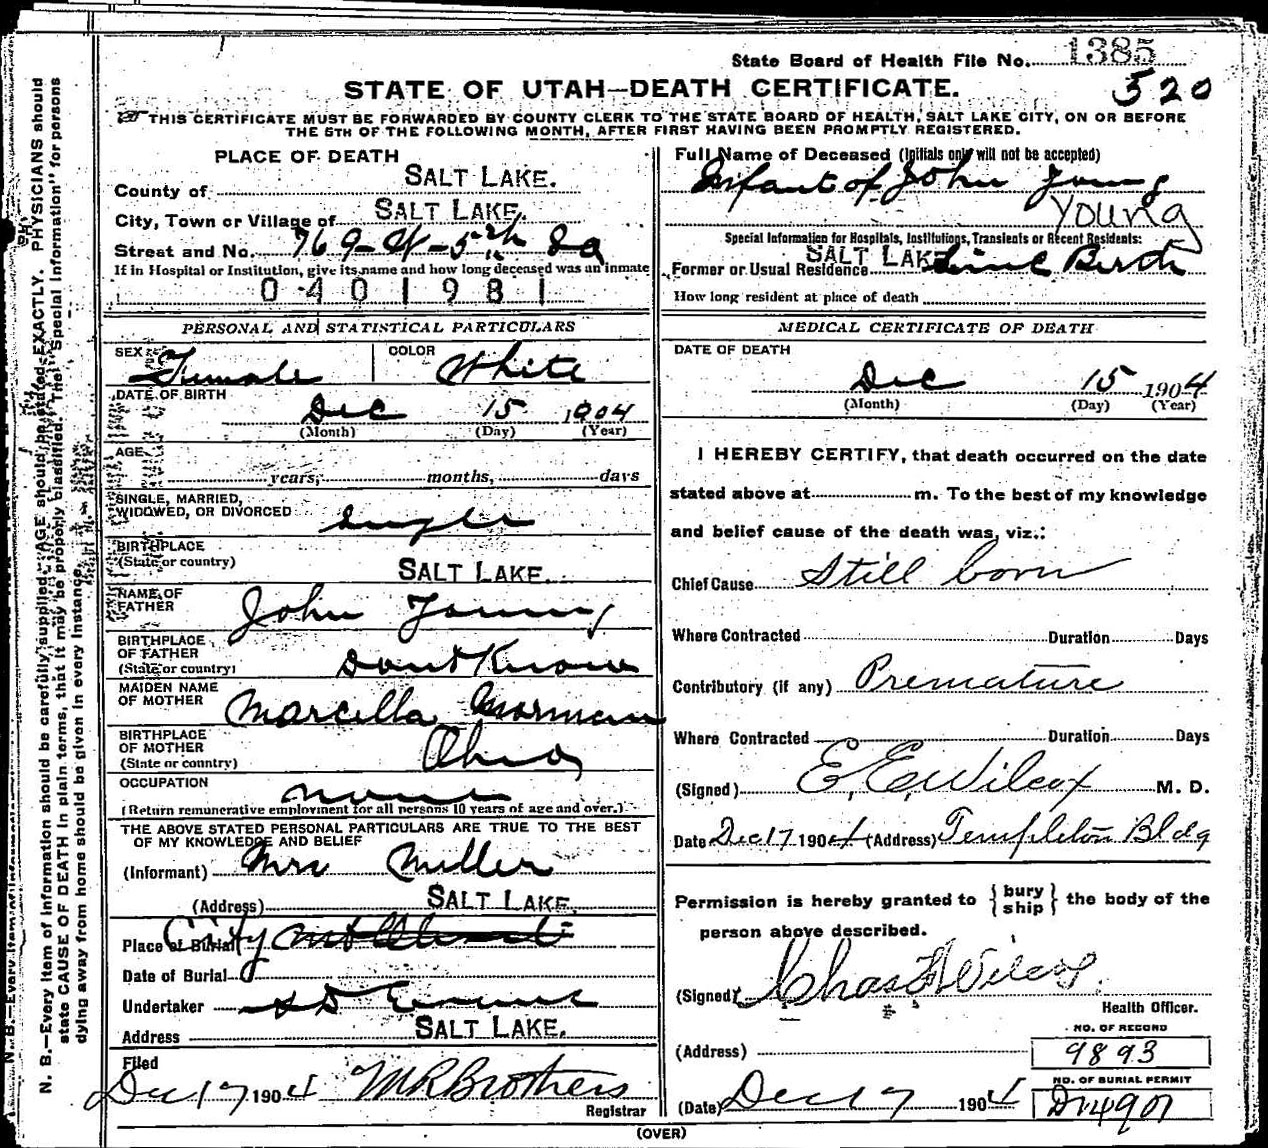 State Board of Health File No. 1385
520
STATE OF UTAH—DEATH CERTIFICATE.
THIS CERTIFICATE MUST BE FORWARDED BY COUNTY CLERK TO THE STATE BOARD OF HEALTH, SALT LAKE CITY, ON OR BEFORE
THE 5TH OF THE FOLLOWING MONTH, AFTER FIRST HAVING BEEN PROMPTLY REGISTERED.
PLACE OF DEATH
County of SALT LAKE.
City, Town or Village of SALT LAKE.
Street and No. 769-W-5th So
If in Hospital or Institution, give its name and how long deceased was an inmate
0401981
PERSONAL AND STATISTICAL PARTICULARS
SEX Female COLOR White
DATE OF BIRTH
Dec 15 1904
(Month) (Day) (Year)
AGE
years, months, days
SINGLE, MARRIED,
WIDOWED, OR DIVORCED single
BIRTHPLACE
(State or country) SALT LAKE.
NAME OF
FATHER John Young
BIRTHPLACE
OF FATHER
(State or country) Dont Know
MAIDEN NAME
OF MOTHER Marcella
BIRTHPLACE
OF MOTHER
(State or country) Ohio
OCCUPATION none
(Return remunerative employment for all persons 10 years of age and over.)
THE ABOVE STATED PERSONAL PARTICULARS ARE TRUE TO THE BEST
OF MY KNOWLEDGE AND BELIEF
(Informant) Mrs Miller
(Address) SALT LAKE.
Place of Burial City
Date of Burial
Undertaker S D Evans
Address SALT LAKE.
Filed
Dec 17 1904 M R Brothers
Registrar
Full Name of Deceased (Initials only will not be accepted)
Infant of John Young
Young
Special Information for Hospitals, Institutions, Transients or Recent Residents:
Former or Usual Residence SALT LAKE Since Berth
How long resident at place of death
MEDICAL CERTIFICATE OF DEATH
DATE OF DEATH
Dec 15 1904
(Month) (Day) (Year)
I HEREBY CERTIFY, that death occurred on the date
stated above at m. To the best of my knowledge
and belief cause of the death was, viz.:
Chief Cause Still born
Where Contracted Duration Days
Contributory (if any) Premature
Where Contracted Duration Days
(Signed) E. E. Wilcox M. D.
Date Dec 17 1904 (Address) Templeton Bldg
Permission is hereby granted to { bury
ship } the body of the
person above described.
(Signed) Chas F Wilcox
Health Officer.
NO. OF RECORD
(Address) 9893
NO. OF BURIAL PERMIT
(Date) Dec 17 1904 D14901
(OVER)
N. B.—Every item of information should be carefully supplied. AGE should be stated EXACTLY. PHYSICIANS should
state CAUSE OF DEATH in plain terms, that it may be properly classified. The "Special Information" for persons
dying away from home should be given in every instance.